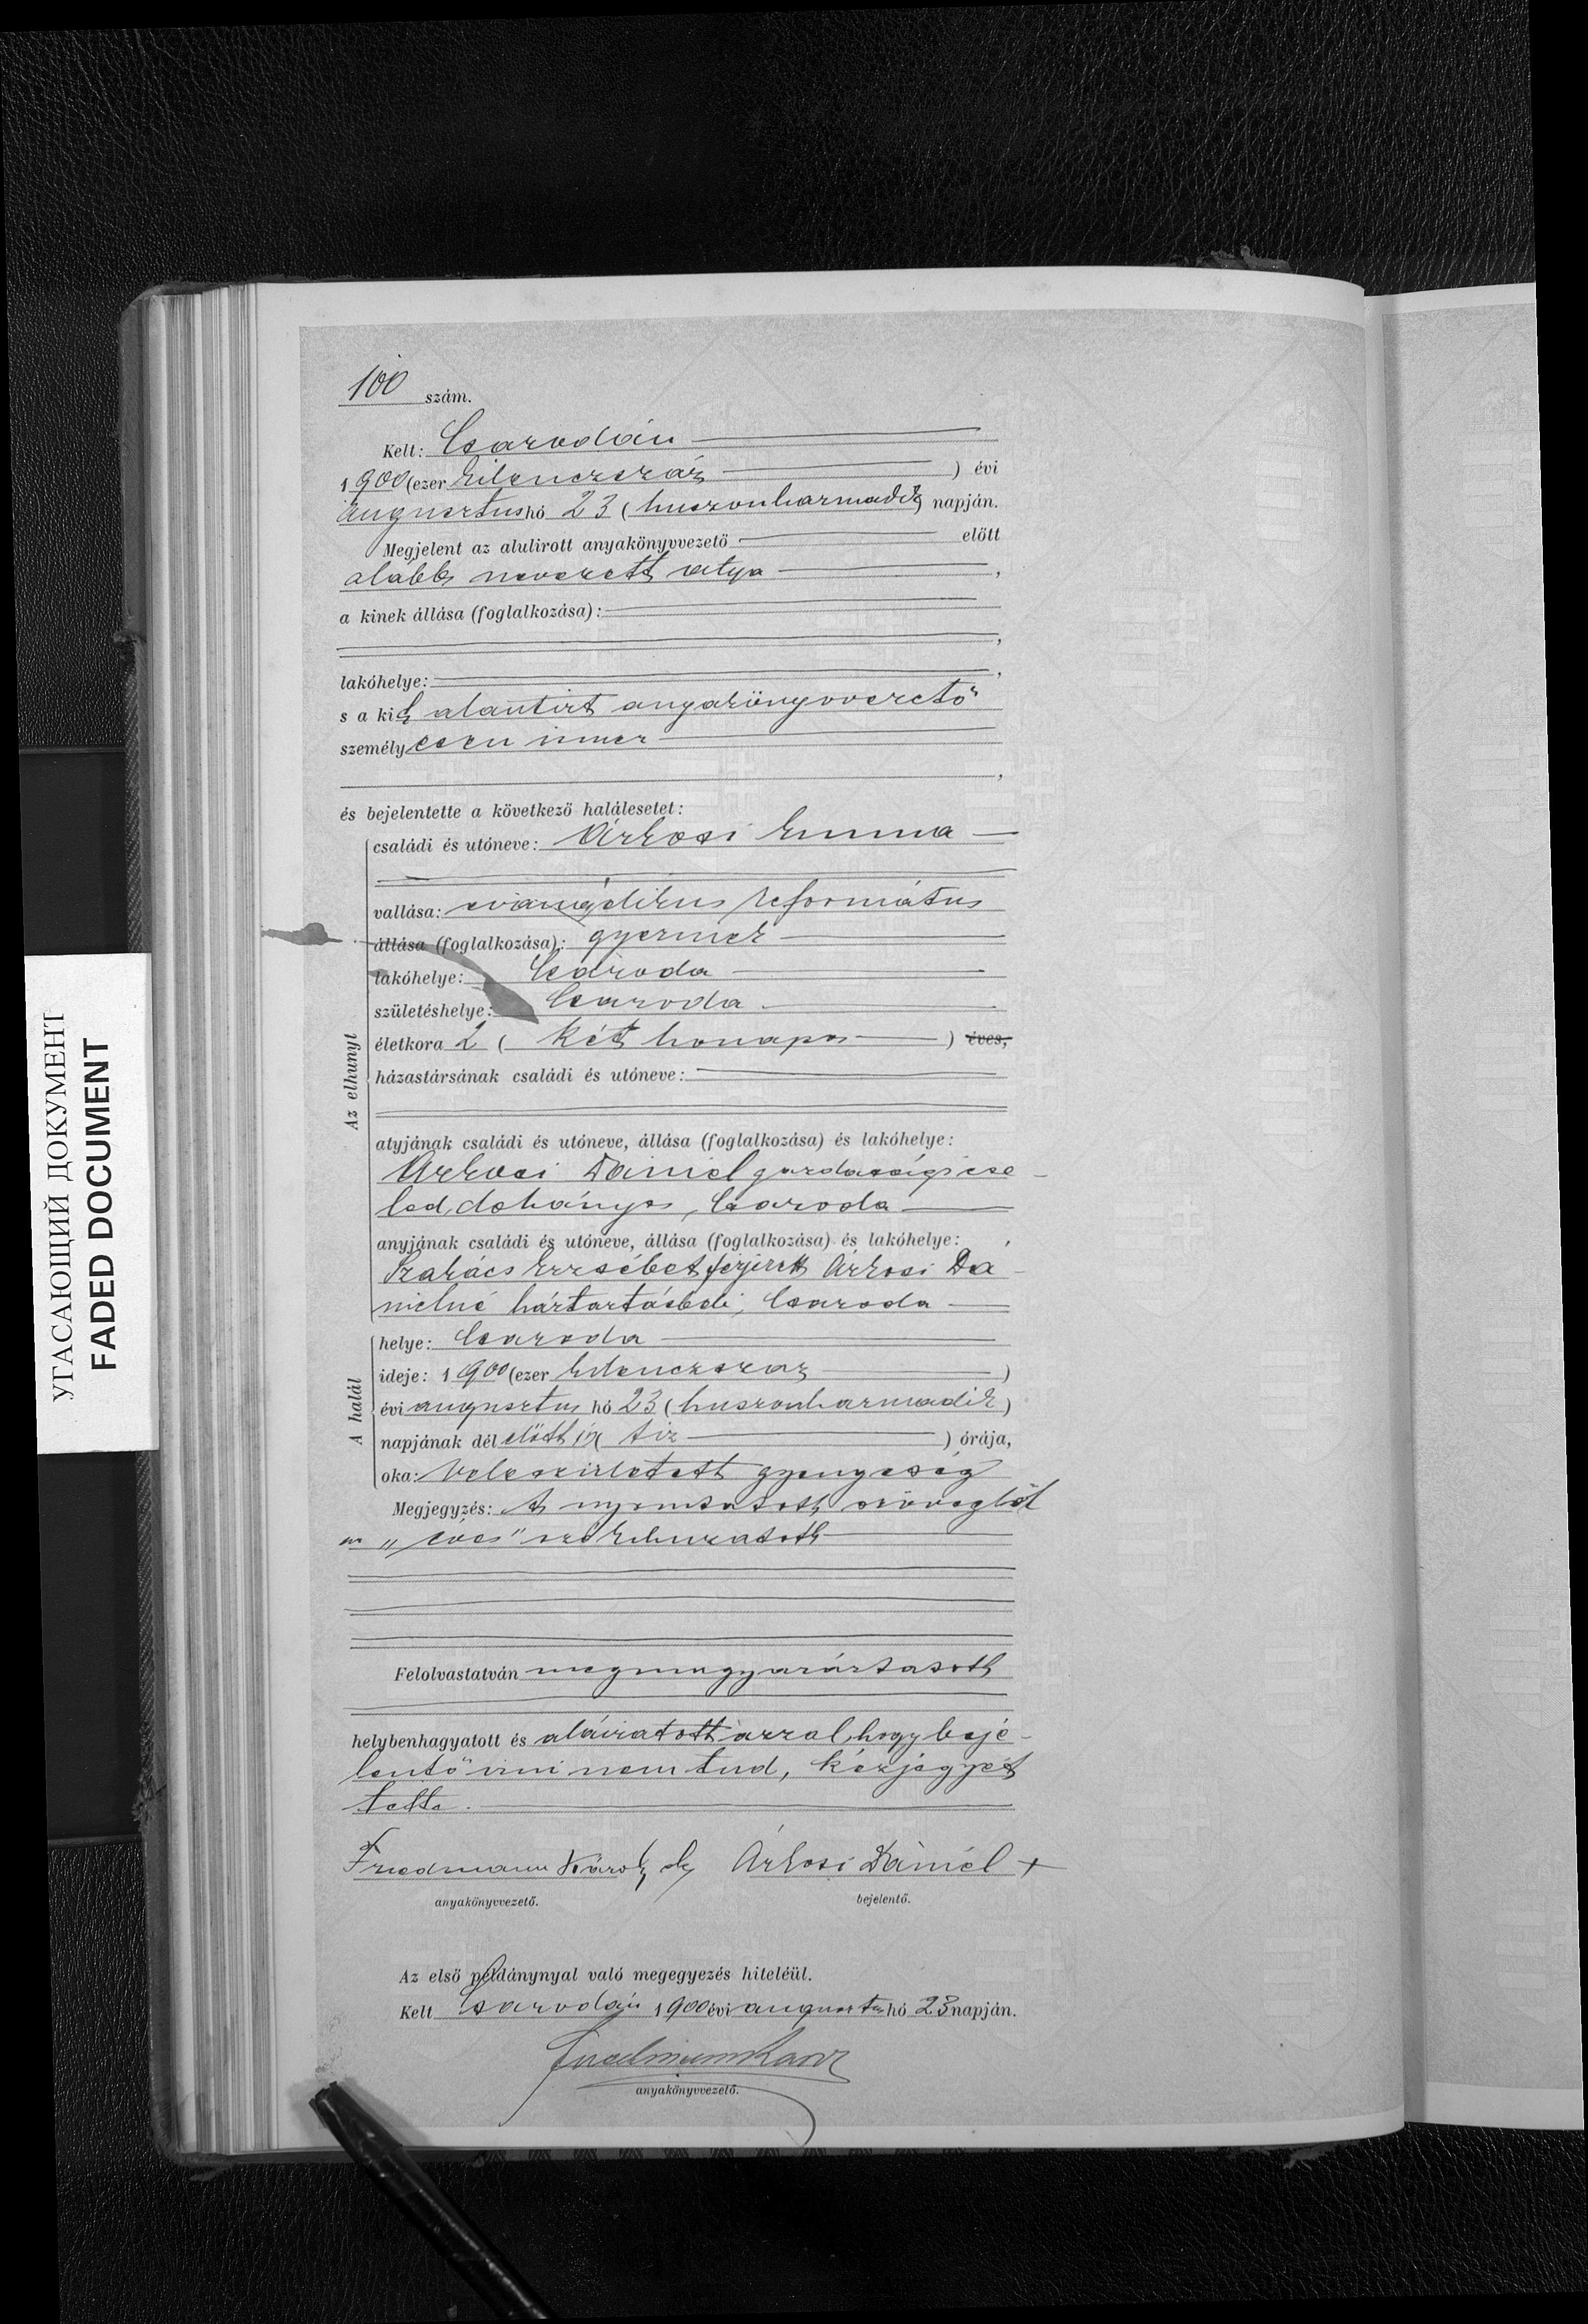 100 szám.
Kelt: Csarodán
1900 (ezer kilenczszáz ) évi
augusztus hó 23 ( huszonharmadik ) napján.
Megjelent az alulirott anyakönyvvezető előtt
alább nevezett atya ,
a kinek állása (foglalkozása):
,
lakóhelye: ,
s a kit alantirt anyakönyvvezető
személyesen ismer
,
és bejelentette a következő halálesetet:
Az elhunyt
családi és utóneve: Árkosi Emma
vallása: evangélikus református
állása (foglalkozása): gyermek
lakóhelye: Csaroda
születéshelye: Csaroda
életkora 2 ( két honapos ) éves,
házastársának családi és utóneve:
atyjának családi és utóneve, állása (foglalkozása) és lakóhelye:
Árkosi Dániel gazdasági cse-
led, dohányos, Csaroda
anyjának családi és utóneve, állása (foglalkozása) és lakóhelye:
Szakács Erzsébet férjezett Árkosi Da-
nielné háztartásbeli, Csaroda
A halál
helye: Csaroda
ideje: 1900 (ezer kilenczszaz )
évi augusztus hó 23 ( huszonharmadik )
napjának dél előtt 10 ( tiz ) órája,
oka: Veleszületett gyengeség
Megjegyzés: A nyomtatott szövegből
az „éves" szó kihuzatott
Felolvastatván megmagyaráztatott
helybenhagyatott és aláiratott azzal, hogy beje-
lentő irni nem tud, kézjegyét
tette.
Friedmann Károly Árkosi Dániel +
anyakönyvvezető. bejelentő.
Az első példánynyal való megegyezés hiteléül.
Kelt Csarodán 1900 évi augusztus hó 23 napján.
anyakönyvvezető.
УГАСАЮЩИЙ ДОКУМЕНТ
FADED DOCUMENT